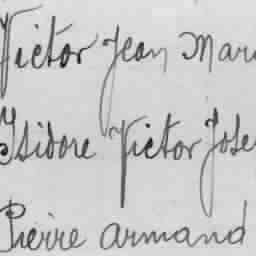 Victor Jean Mari
Isidore Victor Jose
Pierre Armand